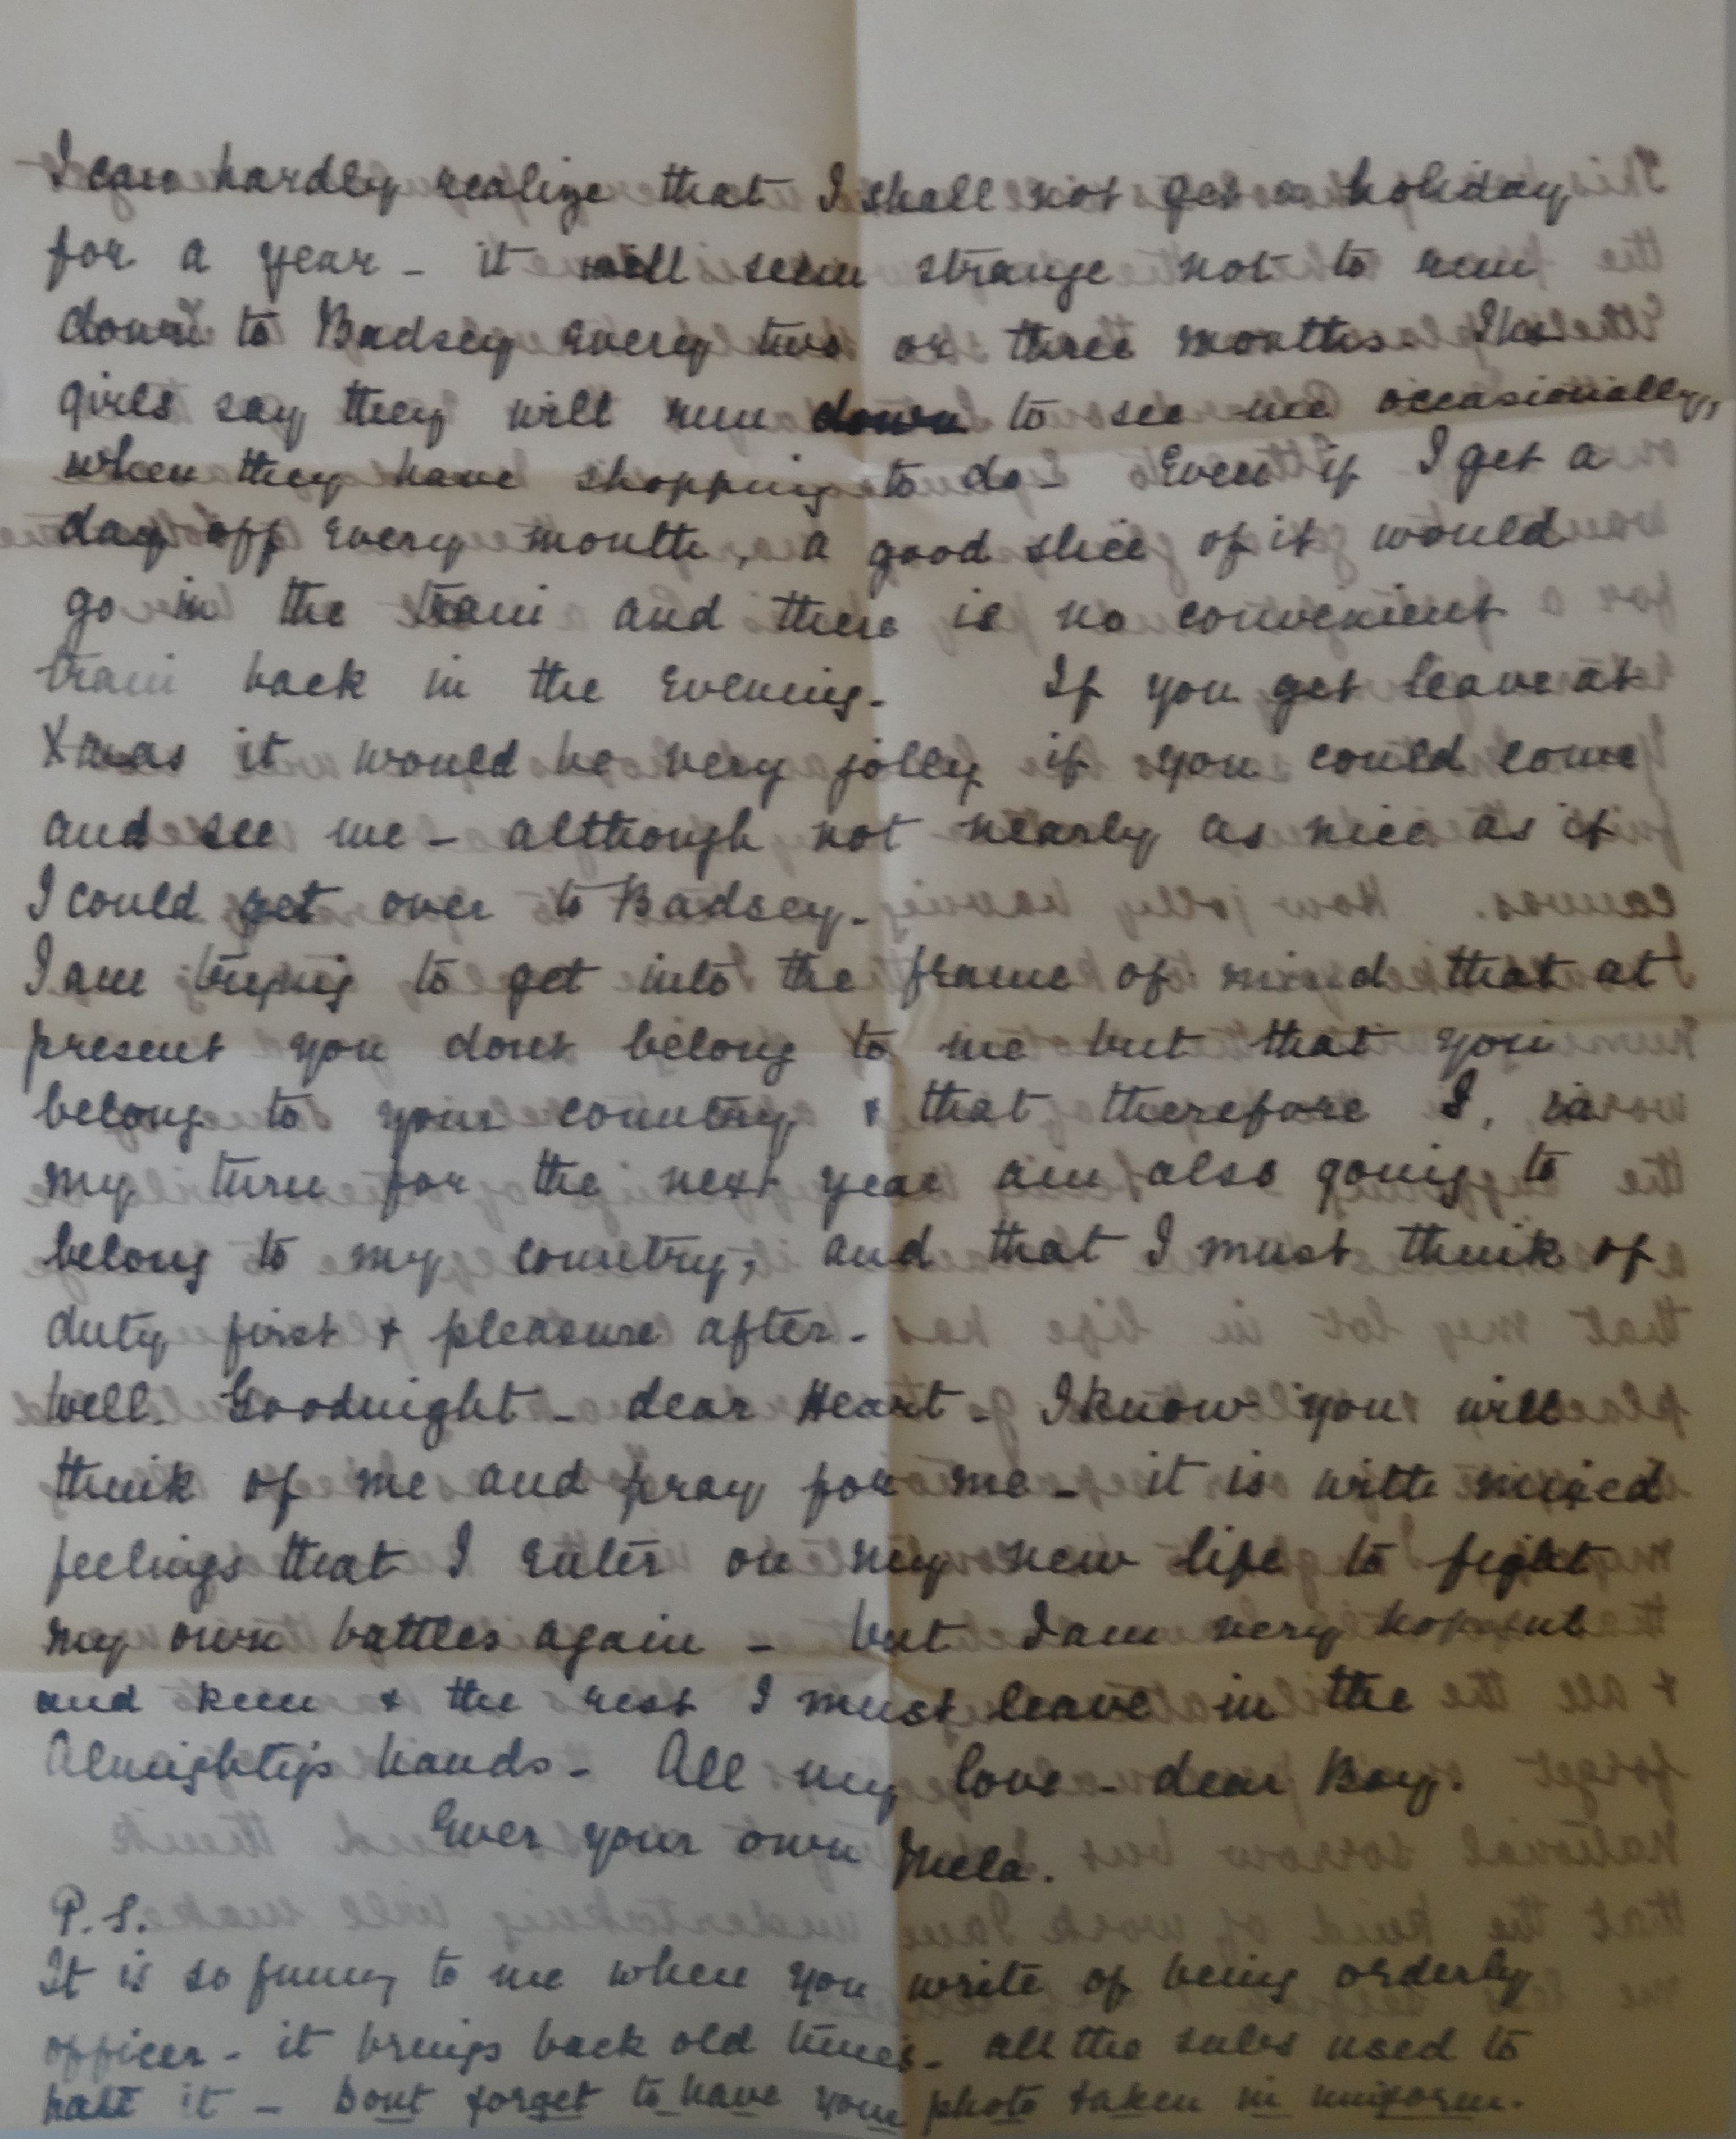 I can hardly realize that I shall not get a holiday
for a year - it will seem strange not to run
down to Badsey every two or three months. The
girls say they will run down to see me occasionally,
when they have shopping to do - Even if I get a
day off every month, a good slice of it would
go in the train and there is no convenient
train back in the evening - If you get leave at
Xmas it would be very jolly if you could come
and see me - although not nearly as nice as if
I could get over to Badsey -
I am trying to get into the frame of mind that at
present you dont belong to me but that you
belong to your country & that therefore I, in
my turn for the next year am also going to
belong to my country, and that I must think of
duty first & pleasure after -
Well. Goodnight - dear Heart - I know you will
think of me and pray for me - it is with mixed
feelings that I enter on my new life to fight
my own battles again - but I am very hopeful
and keen & the rest I must leave in the
Almighty's hands - All my love - dear Boy.
Ever your own Mela.
P.S.
It is so funny to me when you write of being orderly
officer - it brings back old times - all the subs used to
hate it - Dont forget to have your photo taken in uniform.